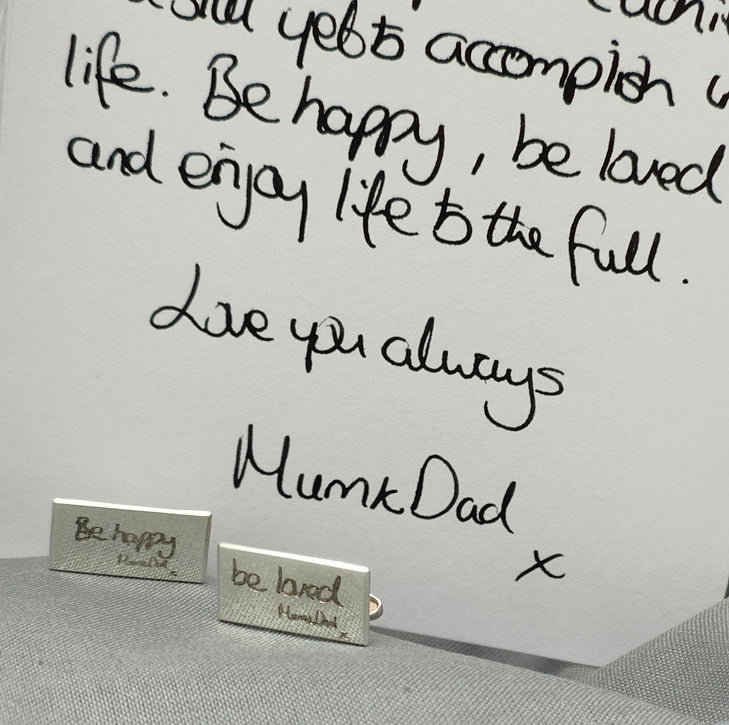 yet to accomplish
life. Be happy, be loved
and enjoy life to the full.
Love you always
Mum & Dad
x
Be happy
Mum & Dad
x
be loved
Mum & Dad
x